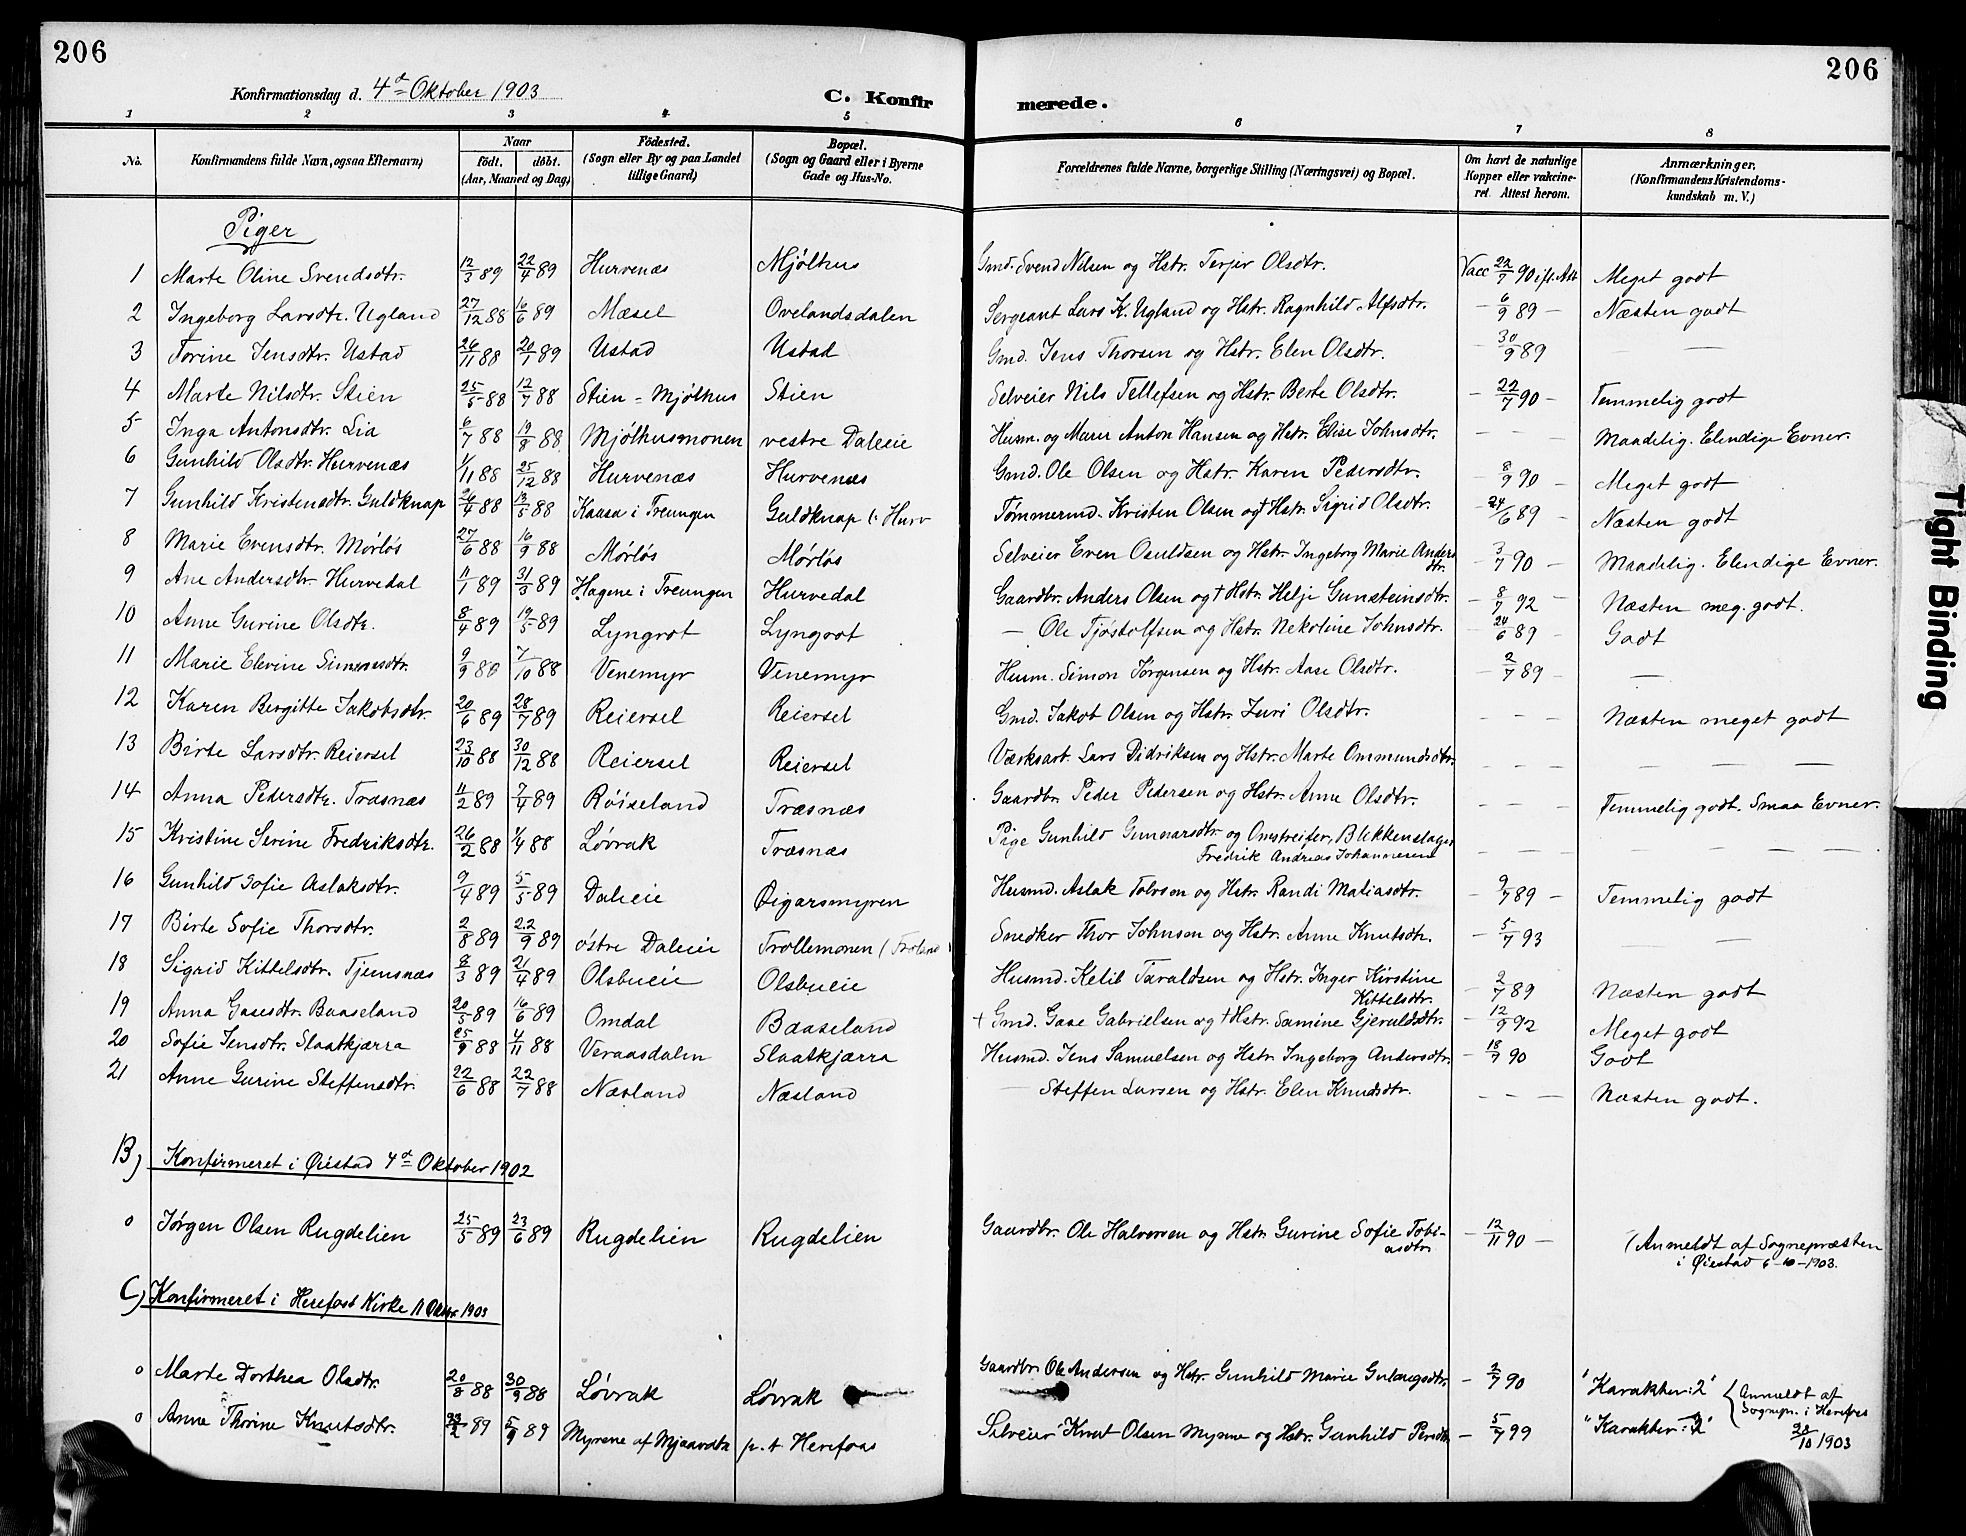 206
206
Konfirmationsdag d. 4d Oktober 1903
C. Konfirmerede.
1 2 3 4 5 6 7 8
No. Konfirmandens fulde Navn, ogsaa Efternavn) Naar født. døbt. (Aar, Maaned og Dag) Födested. (Sogn eller By og paa Landet tillige Gaard) Bopæl. (Sogn og Gaard eller i Byerne Gade og Hus-No. Forældrenes fulde Navne, borgerlige Stilling (Næringsvei) og Bopæl. Om havt de naturlige Kopper eller vakcineret. Attest herom. Anmærkninger. (Konfirmandens Kristendomskundskab m. V.)
Piger
1 Marte Oline Svendsdtr. 12/3 89 22/4 89 Hurvenæs Mjølhus Gmd. Svend Nilsen og Hstr. Terjer Olsdtr. Vacc 22/7 90 ifl. Att Meget godt
2 Ingeborg Larsdtr. Ugland 27/12 88 16/6 89 Mæsel Ovelandsdalen Sergeant Lars K. Ugland og Hstr. Ragnhild Alfsdtr. – 6/9 89 – Næsten godt
3 Torine Jensdtr. Ustad 26/11 88 20/1 89 Ustad Ustad Gmd. Jens Thorsen og Hstr. Elen Olsdtr. – 30/9 89 — —
4 Marte Nilsdtr. Stien 25/5 88 12/7 88 Stien - Mjølhus Stien Selveier Nils Tellefsen og Hstr. Berte Olsdtr. – 22/7 90 – Temmelig godt
5 Inga Antonsdtr. Lia 6/7 88 19/8 88 Mjølhusmonen vestre Daleie Husm. og Murer Anton Hansen og Hstr. Elise Johnsdtr. – – – Maadelig. Elendige Evner.
6 Gunhild Olsdtr. Hurvenæs 1/11 88 25/12 88 Hurvenæs Hurvenæs Gmd. Ole Olsen og Hstr. Karen Pedersdtr. – 8/9 90 – Meget godt
7 Gunhild Kristensdtr. Guldknap 26/4 88 13/5 88 Kaasa i Treungen Guldknap (: Hurv Tømmermd. Kristen Olsen og † Hstr. Sigrid Olsdtr. – 24/6 89 – Næsten godt
8 Marie Evensdtr. Mørløs 27/6 88 16/9 88 Mørløs Mørløs Selveier Even Osuldsen og Hstr. Ingeborg Marie Andersdtr. – 3/7 90 – Maadelig. Elendige Evner.
9 Ane Andersdtr. Hurvedal 11/1 89 31/3 89 Hagene i Treungen Hurvedal Gaardbr. Anders Olsen og † Hstr. Helje Gunsteinsdtr. – 8/7 92 Næsten meg. godt.
10 Anne Gurine Olsdtr. 8/4 89 19/5 89 Lyngrot Lyngrot — Ole Tjøstolfsen og Hstr. Nekoline Johnsdtr. – 24/6 89 – Godt
11 Marie Elevine Simonsdtr. 9/9 80 7/10 88 Venemyr Venemyr Husm. Simon Jørgensen og Hstr. Aase Olsdtr. – 2/7 89 – —
12 Karen Bergitte Jakobsdtr. 20/6 89 28/7 89 Reiersel Reiersel Gmd. Jakob Olsen og Hstr. Juri Olsdtr. – – – Næsten meget godt
13 Birte Larsdtr. Reiersel 23/10 88 30/12 88 Reiersel Reiersel Værksarb. Lars Didriksen og Hstr. Marte Ommundsdtr. – – – — — —
14 Anna Pedersdtr. Træsnæs 11/2 89 7/4 89 Røiseland Træsnæs Gaardbr. Peder Pedersen og Hstr. Anne Olsdtr. – – – Temmelig godt. Smaa Evner.
15 Kristine Serine Fredriksdtr. 26/2 88 1/4 88 Løvrak Træsnæs Pige Gunhild Gunnarsdtr. og Omstreifer, Blikkenslager Fredrik Andreas Johannesen – – – — — —
16 Gunhild Sofie Aslaksdtr. 9/4 89 5/5 89 Daleie Øigarsmyren Husmd. Aslak Tolvsen og Hstr. Randi Matiasdtr. – 9/7 89 – Temmelig godt
17 Birte Sofie Thorsdtr. 2/8 89 22/9 89 østre Daleie Trollemonen Snedker Thor Johnsen og Hstr. Anne Knutsdtr. – 5/7 93 — —
18 Sigrid Kittelsdtr. Tjemsnæs 8/3 89 21/4 89 Olsbueie Olsbueie Husmd. Ketil Taraldsen og Hstr. Inger Kirstine Kittelsdtr. – 2/7 89 Næsten godt
19 Anna Gasesdtr. Baaseland 20/5 89 16/6 89 Omdal Baaseland † Gmd. Gase Gabrielsen og † Hstr. Samine Gjeruldsdtr. – 12/9 92 Meget godt
20 Sofie Jensdtr. Slaatkjærra 25/9 88 4/11 88 Veraasdalen Slaatkjærra Husmd. Jens Samuelsen og Hstr. Ingeborg Andersdtr. – 18/7 90 Godt
21 Anne Gurine Steffensdtr. 22/6 88 22/7 88 Næsland Næsland — Steffen Larsen og Hstr. Elen Knudsdtr. – – – Næsten godt.
B) Konfirmeret i Øiestad 4d Oktober 1902
0 Jørgen Olsen Rugdelien 25/5 89 23/6 89 Rugdelien Rugdelien Gaardbr. Ole Halvorsen og Hstr. Gurine Sofie Tobiasdtr – 12/11 90 – (Anmeldt af Sognepræsten i Øiestad 6-10-1903.
C) Konfirmeret i Herefoss Kirke 11 Oktbr. 1903
0 Marte Dorthea Olsdtr. 20/8 88 30/9 88 Løvrak Løvrak Gaardbr. Ole Andersen og Hstr. Gunhild Marie Gulaugsdtr. – 2/7 90 "Karakter: 2" Anmeldt af Sognepr. i Herefos 20/10 1903
0 Anne Thorine Knutsdtr. 23/2 89 5/9 89 Myrene af Mjaavatn p. t. Herefoss Selveier Knut Olsen Myrene og Hstr. Gunhild Persdtr – 5/7 99 "Karakter: 2"
Tight Binding